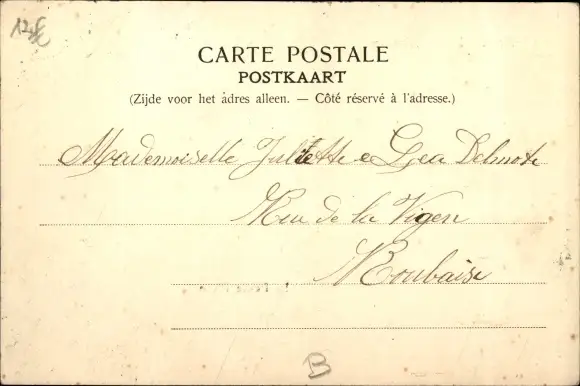 12 fc
CARTE POSTALE
POSTKAART
(Zijde voor het adres alleen. — Côté réservé à l'adresse.)
Mademoiselle Juliette e Lea Delmote
Rue de la Vigen
Roubaise
B